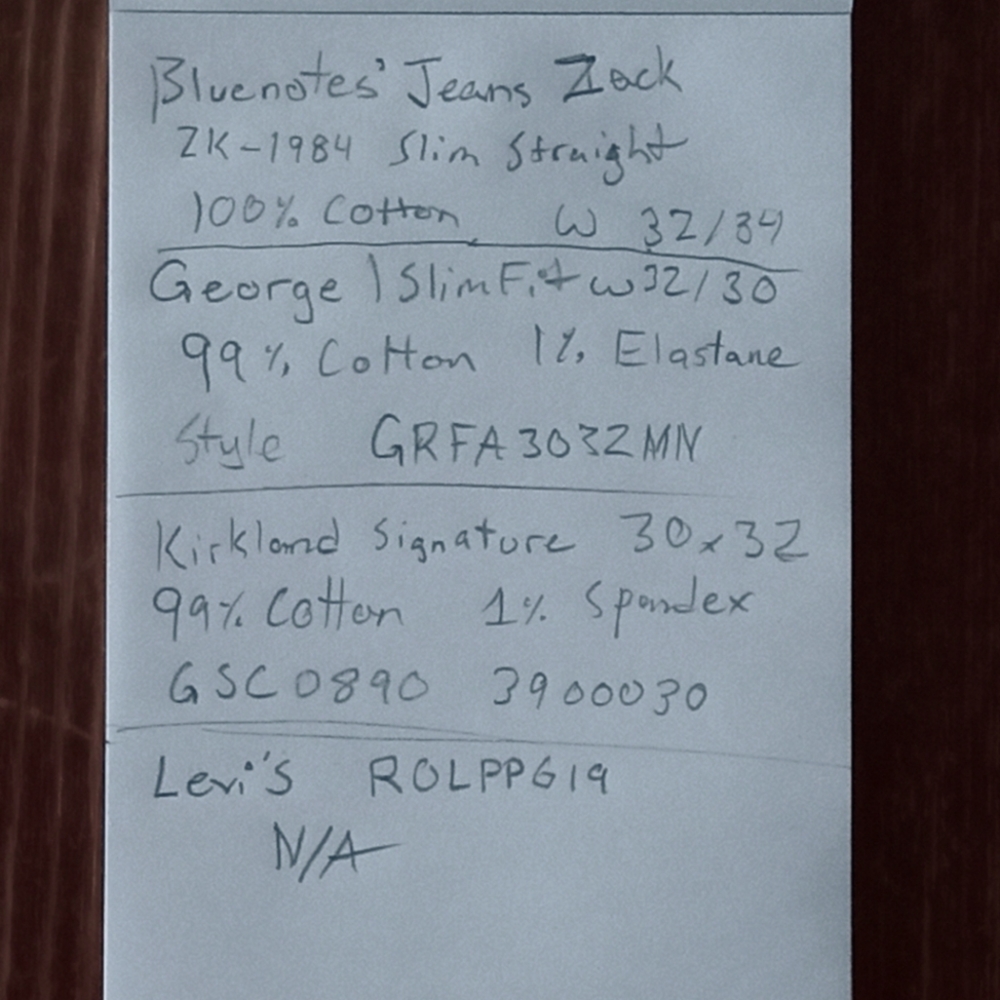 Bluenotes' Jeans Zack
ZK-1984 Slim Straight
100% Cotton W 32/34
George | Slim Fit w32/30
99% Cotton 1% Elastane
Style GRFA3032MN
Kirkland Signature 30x32
99% Cotton 1% Spandex
GSC0890 3900030
Levi's ROLPPG19
N/A